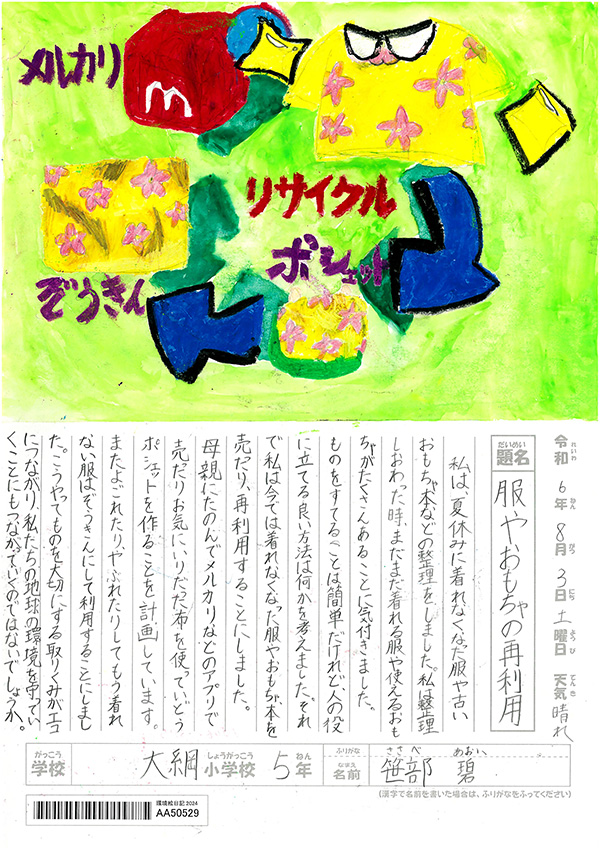 メルカリ
m
リサイクル
ポシェット
ぞうきん
令和6年8月3日土曜日 天気 晴れ
れいわ ねん がつ にち ようび てんき
だいめい
題名
服やおもちゃの再利用
私は、夏休みに着れなくなった服や古い
おもちゃ本などの整理をしました。私は整理
しおわった時、まだまだ着れる服や使えるおも
ちゃがたくさんあることに気付きました。
ものをすてることは簡単だけれど、人の役
に立てる良い方法は何かを考えました。それ
で私は今では着れなくなった服やおもちゃ、本を
売だり、再利用することにしました。
母親にたのんでメルカリなどのアプリで
売だりお気にいりだった布を使っていどう
ポシェットを作ることを計画しています。
またよごれたり、やぶれたりしてもう着れ
ない服はぞうきんにして利用することにしまし
た。こうやってものを大切にする取りくみがエコ
につながり、私たちの地球の環境を守ってい
くことにもつながっていくのではないでしょうか。
がっこう
学校
大綱
しょうがっこう
小学校
5
ねん
年
ふりがな
ささべ あおい
なまえ
名前
笹部 碧
(漢字で名前を書いた場合は、ふりがなをふってください)
環境絵日記2024
AA50529